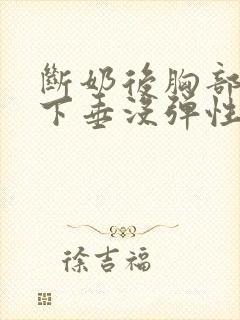 斷奶後胸部
下垂沒彈性
徐吉福